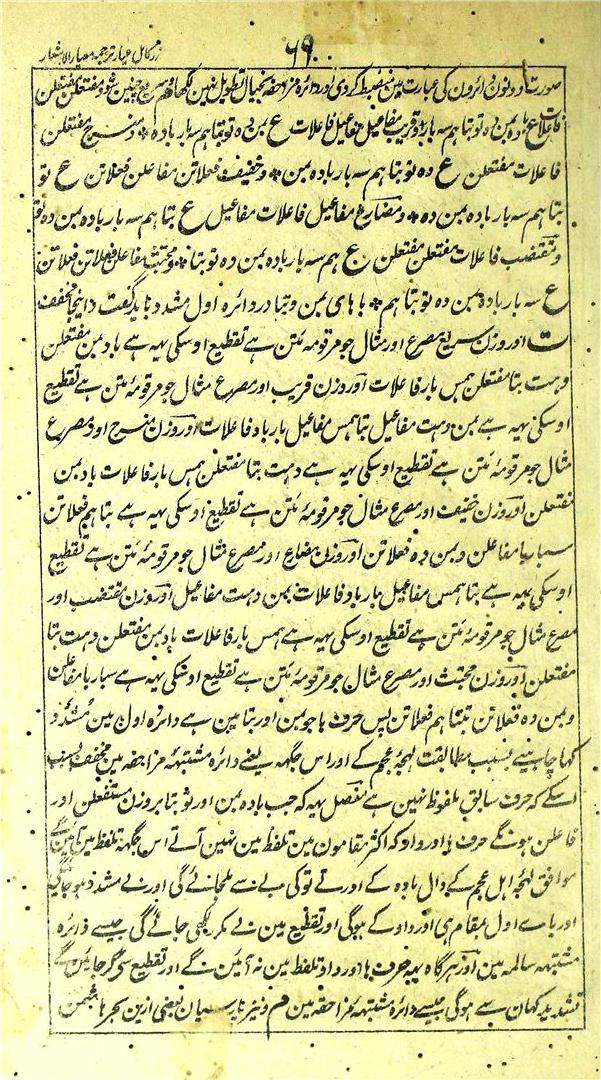 زر کامل عیار ترجمہ معیار الاشعار
۶۹
صورت اور نون دائرون کی عبارت مین منضبط کر دی اور دائرہ مزاحفہ بخیال تطویل نہین لکھا وہم سریع چنین شود مفتعلن مفتعلن
فاعلات ع بادہ بمن دہ تو بتا ہم سہ بار و قریب مفاعیل مفاعیل فاعلات ع بمن دہ تو بتا ہم سہ بار بادہ و منسرح مفتعلن
فاعلات مفتعلن ع دہ تو بتا ہم سہ بار بادہ بمن و خفیف فعلاتن مفاعلن فعلاتن ع تو
بتا ہم سہ بار بادہ بمن دہ و مضارع مفاعیل فاعلات مفاعیل ع بتا ہم سہ بار بادہ بمن دہ تو
و مقتضب فاعلات مفتعلن مفتعلن ع ہم سہ بار بادہ بمن دہ تو بتا و مجتث مفاعلن فعلاتن فعلاتن
ع سہ بار بادہ بمن دہ تو بتا ہم با ہای بمن و بتا در دائرہ اول مشدد باید گفت و اینجا مخفف
ت اور وزن سریع مصرع اور مثال جو مرقومہ متن ہے تقطیع اوسکی یہہ ہے بادبمن مفتعلن
دہت بتا مفتعلن ہمس بار فاعلات اور وزن قریب اور مصرع مثال جو مرقومہ متن ہے تقطیع
اوسکی یہہ ہے بمن دہت مفاعیل بتا ہمس مفاعیل بار باد فاعلات اور وزن منسرح اور مصرع
مثال جو مرقومہ متن ہے تقطیع اوسکی یہہ ہے دہت بتا مفتعلن ہمس بار فاعلات بادبمن
مفتعلن اور وزن خفیف اور مصرع مثال جو مرقومہ متن ہے تقطیع اوسکی یہہ ہے بتا ہم فعلاتن
سبار با مفاعلن دبمن دہ فعلاتن اور وزن مضارع اور مصرع مثال جو مرقومہ متن ہے تقطیع
اوسکی یہہ ہے بتا ہمس مفاعیل بار باد فاعلات بمن دہت مفاعیل اور وزن مقتضب اور
مصرع مثال جو مرقومہ متن ہے تقطیع اوسکی یہہ ہے ہمس بار فاعلات بادبمن مفتعلن دہت بتا
مفتعلن اور وزن مجتث اور مصرع مثال جو مرقومہ متن ہے تقطیع اوسکی یہہ ہے سبار با مفاعلن
دبمن دہ فعلاتن تبتا ہم فعلاتن پس حرف ہا جو بمن اور بتا مین ہے دائرہ اول مین مشدد
کہا چاہئیے بسبب مطابقت لہجہ عجم کے اور اس جگہہ یعنے دائرہ مشتبہہ مزاحفہ مین مخفف بسبب
اسکے کہ حرف سابق ملفوظ نہین ہے مفصل یہہ کہ جب بادہ بمن اور تو بتا بروزن مستفعلن اور
فاعلن ہونگے حرف ہا اور واو کہ اکثر مقامون مین تلفظ مین نہین آتے اس جگہہ تلفظ مین آئین گے
موافق لہجہ اہل عجم کے دال بادہ کے اور تے تو کی بے سے ملجائے گی اور بے مشدد ہو جائیگی
اور باے اول بمقام ہی اور واو کے ہوگی اور تقطیع مین بے مکرر لکھی جائے گی جیسے دائرہ
مشتبہہ سالمہ مین اور ہرگاہ یہہ حرف ہا اور واو تلفظ مین نہ آئین گے اور تقطیع سے گر جائین گے
تشدید کہان سے ہوگی جیسے دائرہ مشتبہہ مزاحفہ مین م و نیز پارسیان بعضی ازین بحرہا مثمن